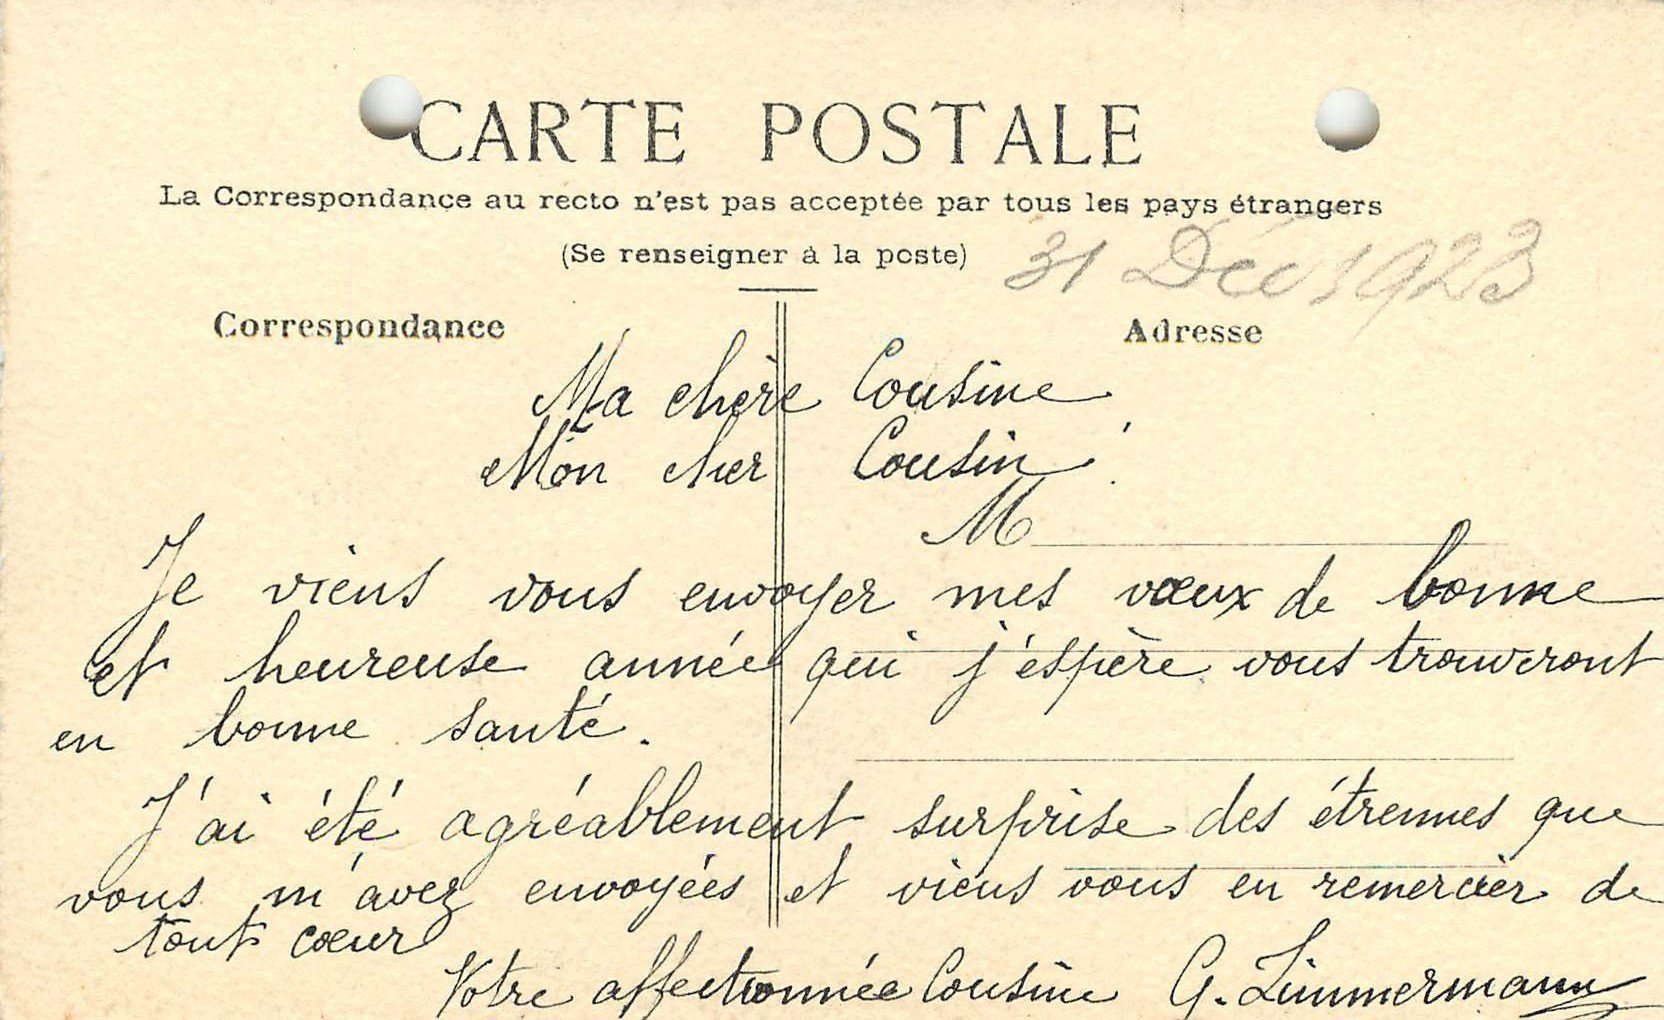 CARTE POSTALE
La Correspondance au recto n'est pas acceptée par tous les pays étrangers
(Se renseigner à la poste)
31 Déc 1923
Correspondance
Adresse
Ma chère Cousine
Mon cher Cousin
M
Je viens vous envoyer mes vœux de bonne
et heureuse année qui j'espère vous trouveront
en bonne santé.
J'ai été agréablement surprise des étrennes que
vous m'avez envoyées et viens vous en remercier de
tout cœur
Votre affectionnée Cousine G. Zimmermann